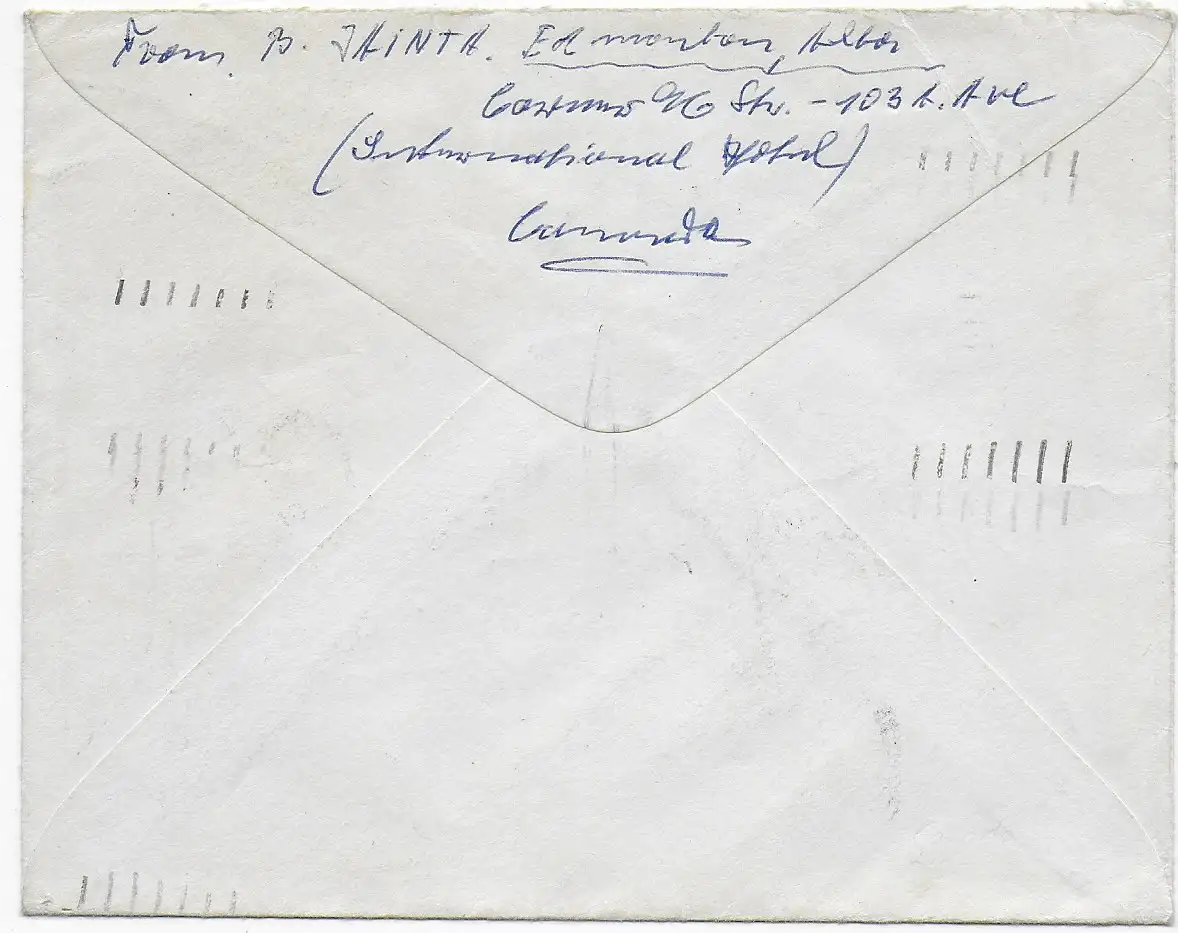 From B. JAINTA. Edmonton, Alba
Corner 96 Str. - 103 A. Ave
(International Hotel)
Canada